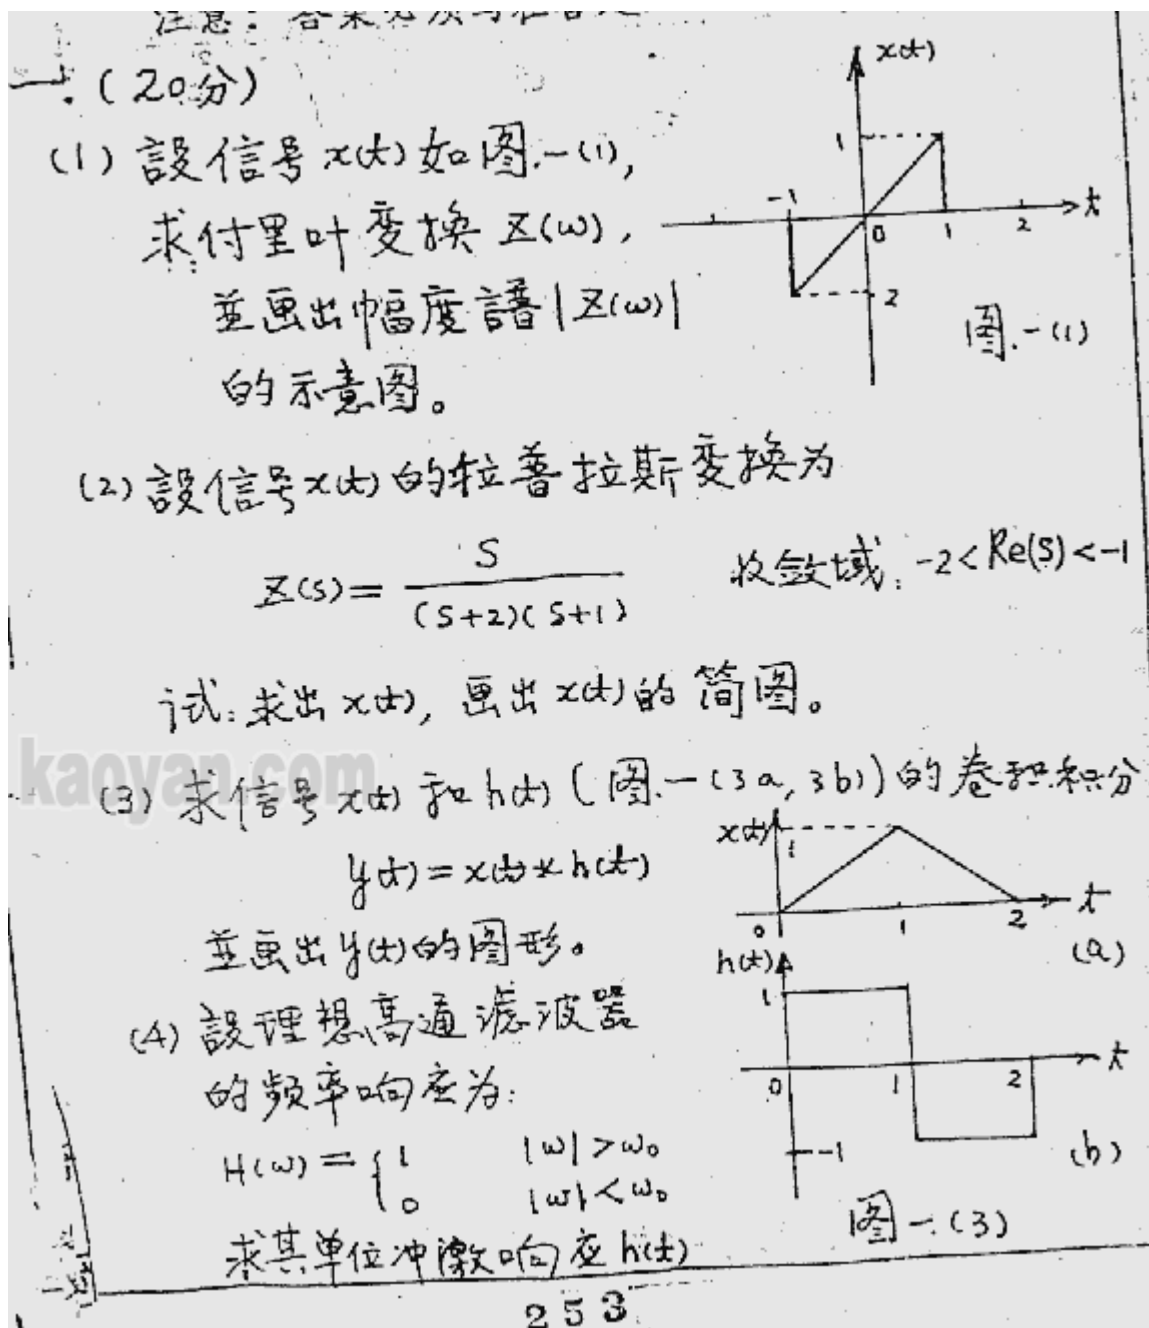 一.(20分)
(1) 設信号 x(t) 如图.一(1),
求付里叶变换 X(ω),
並画出幅度譜 |X(ω)|
的示意图。
x(t)
1
-1
0
1
2
t
2
图.一(1)
(2) 設信号 x(t) 的拉普拉斯变换为
X(s) = S / ((S+2)(S+1))  收敛域: -2<Re(S)<-1
试: 求出 x(t), 画出 x(t) 的简图。
kaoyan.com
(3) 求信号 x(t) 和 h(t) (图.一(3a, 3b)) 的卷积积分
y(t) = x(t) * h(t)
並画出 y(t) 的图形。
x(t)
1
0
1
2
t
(a)
h(t)
1
0
1
2
t
-1
(b)
图一.(3)
(4) 設理想高通滤波器
的频率响应为:
H(ω) = { 1  |ω|>ω₀
0  |ω|<ω₀
求其单位冲激响应 h(t)
253